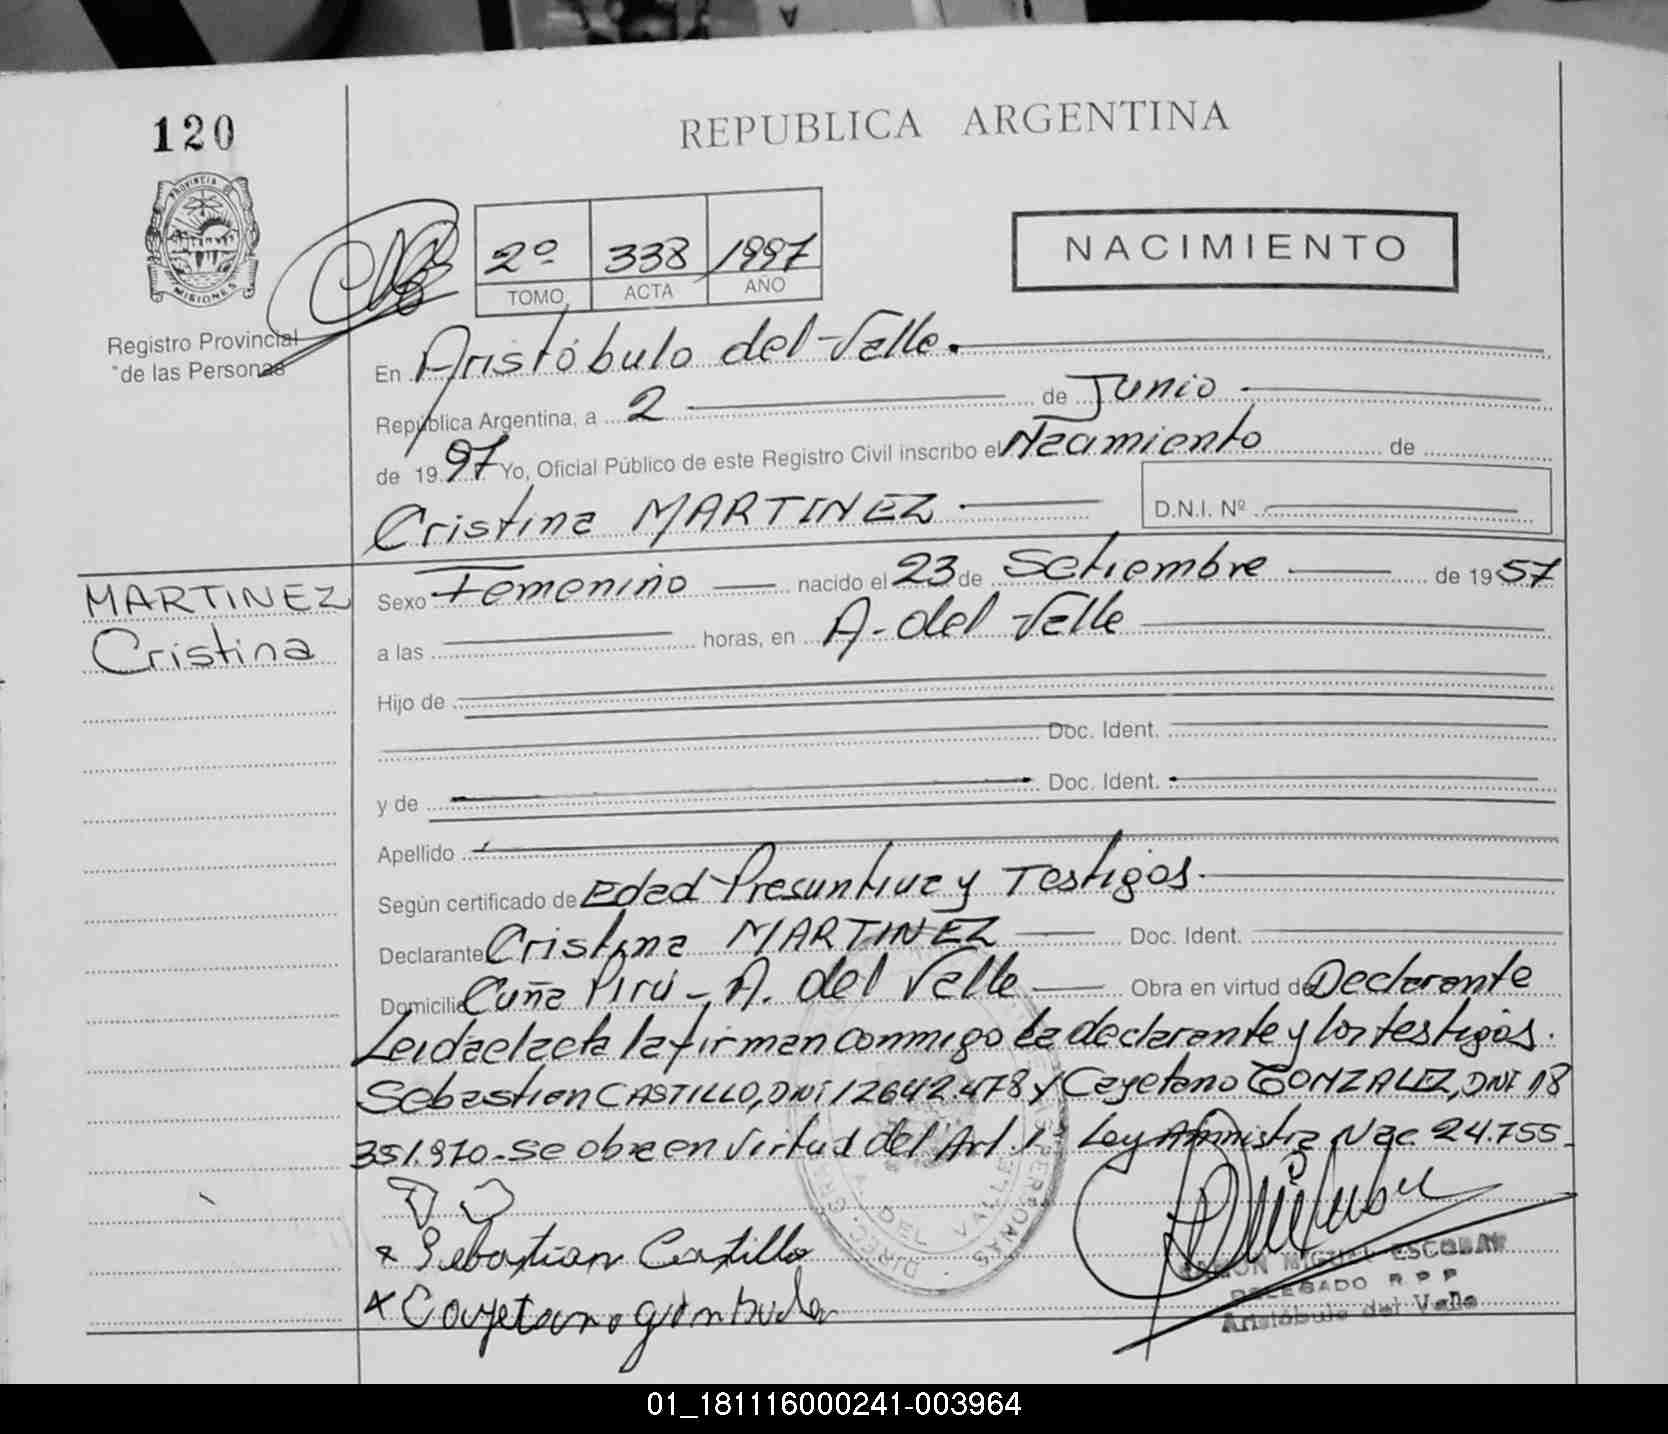 120
REPUBLICA ARGENTINA
PROVINCIA DE
MISIONES
Registro Provincial
de las Personas
2º 338 1997
TOMO ACTA AÑO
NACIMIENTO
En Aristóbulo del Valle.
República Argentina, a 2 de Junio
de 1997 Yo, Oficial Público de este Registro Civil inscribo el Nacamiento de
Cristina MARTINEZ D.N.I. Nº
MARTINEZ
Cristina
Sexo Femenino nacido el 23 de Setiembre de 1957
a las horas, en A. del Valle
Hijo de
Doc. Ident.
y de Doc. Ident.
Apellido
Según certificado de Edad Presuntiva y Testigos.
Declarante Cristina MARTINEZ Doc. Ident.
Domicilio Cuña Pirú - A. del Valle Obra en virtud de Declarante
Leida el acta la firman conmigo la declarante y los testigos.
Sebastian CASTILLO, DNI 12642.478 y Cayetano GONZALEZ, DNI 18
351.970 - se obra en virtud del Art. 1º Ley Amnistia Nac. 24.755 -
x Sebastian Castillo
x Cayetano
DIREC. GRAL. PERSONAS
DEL VALLE
RAMON MIGUEL ESCOBAR
DELEGADO R P P
Aristóbulo del Valle
01_181116000241-003964